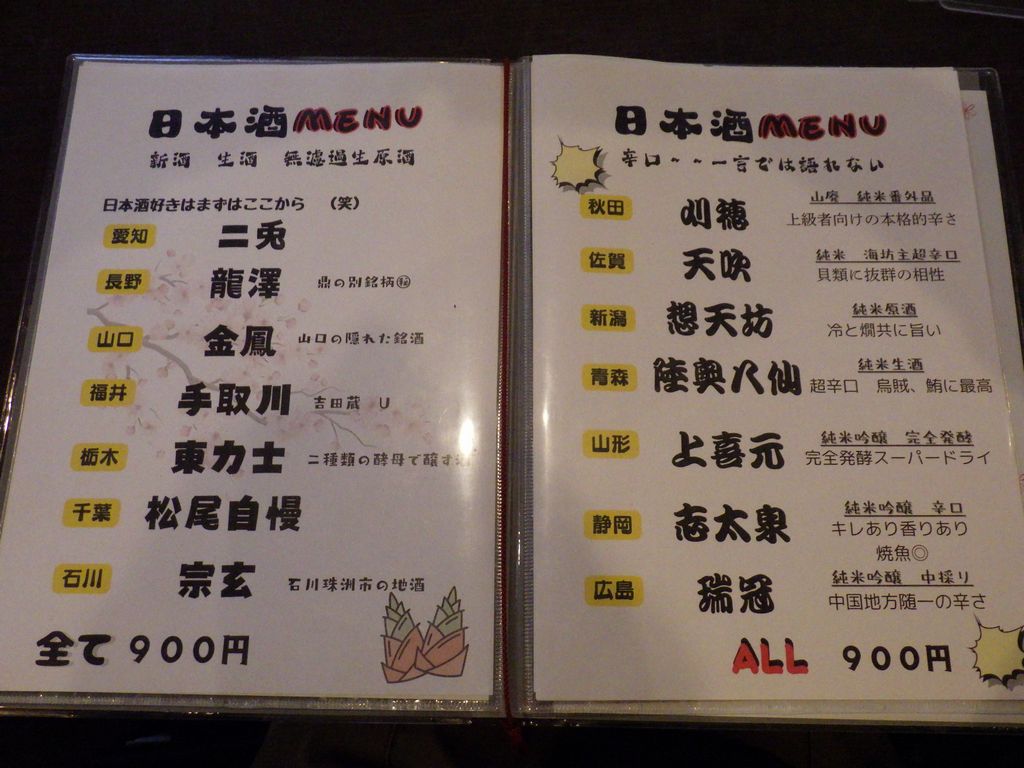 日本酒MENU
新酒　生酒　無濾過生原酒
日本酒好きはまずはここから　（笑）
愛知　二兎
長野　龍澤　鼎の別銘柄㊙
山口　金鳳　山口の隠れた銘酒
福井　手取川　吉田蔵　U
栃木　東力士　二種類の酵母で醸す酒
千葉　松尾自慢
石川　宗玄　石川珠洲市の地酒
全て　900円
日本酒MENU
辛口～～一言では語れない
山廃　純米番外品
秋田　刈穂　上級者向けの本格的辛さ
純米　海坊主超辛口
佐賀　天吹　貝類に抜群の相性
純米原酒
新潟　想天坊　冷と燗共に旨い
純米生酒
青森　陸奥八仙　超辛口　烏賊、鮪に最高
純米吟醸　完全発酵
山形　上喜元　完全発酵スーパードライ
純米吟醸　辛口
静岡　志太泉　キレあり香りあり
焼魚◎
純米吟醸　中採り
広島　瑞冠　中国地方随一の辛さ
ALL　900円